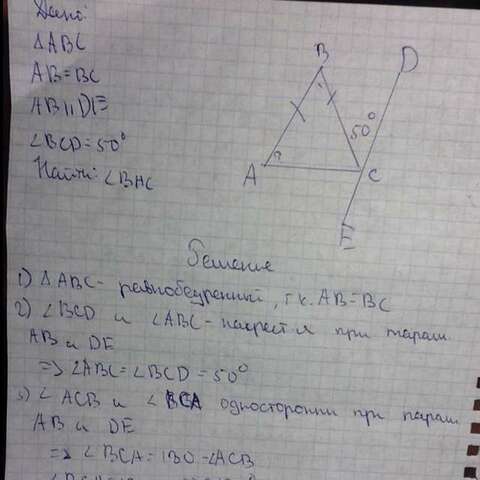 Дано:
ΔABC
AB=BC
AB || DE
∠BCD=50°
Найти: ∠BAC
B
D
50°
A
?
C
E
Решение
1) ΔABC - равнобедренный, т.к. AB=BC
2) ∠BCD и ∠ABC - накрест л при парал.
AB и DE
=> ∠ABC=∠BCD=50°
3) ∠ACB и ∠BCA односторонни при парал.
AB и DE
=> ∠BCA=180-∠ACB